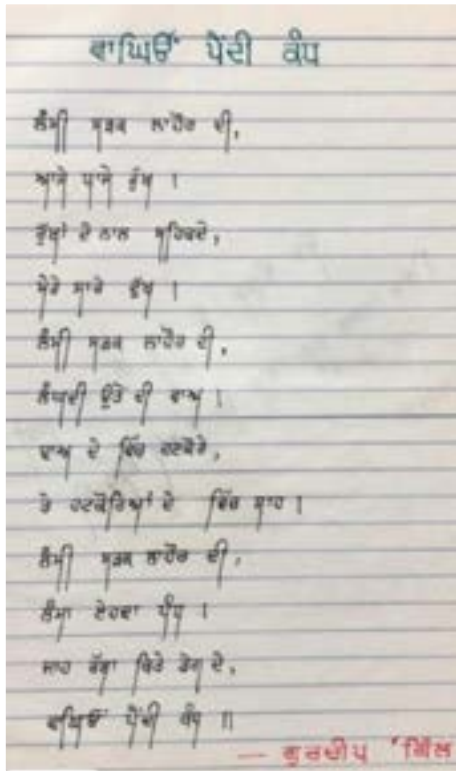 ਵਾਘਿਓਂ ਪੈਂਦੀ ਕੰਧ
ਲੰਮੀ ਸੜਕ ਲਾਹੌਰ ਦੀ,
ਆਸੇ ਪਾਸੇ ਰੁੱਖ ।
ਰੁੱਖਾਂ ਦੇ ਨਾਲ ਸਹਿਕਦੇ,
ਮੇਰੇ ਸਾਰੇ ਦੁੱਖ ।
ਲੰਮੀ ਸੜਕ ਲਾਹੌਰ ਦੀ,
ਲੰਘਦੀ ਉੱਤੇ ਦੀ ਵਾਅ ।
ਵਾਅ ਦੇ ਵਿੱਚ ਹਟਕੋਰੇ,
ਤੇ ਹਟਕੋਰਿਆਂ ਦੇ ਵਿੱਚ ਸਾਹ ।
ਲੰਮੀ ਸੜਕ ਲਾਹੌਰ ਦੀ,
ਲੰਮਾ ਏਹਦਾ ਪੰਧ ।
ਜਾਹ ਕਿਤੇ ਦੇ,
ਵਾਘਿਓਂ ਪੈਂਦੀ ਕੰਧ ॥
— ਗੁਰਦੀਪ ਗਿੱਲ